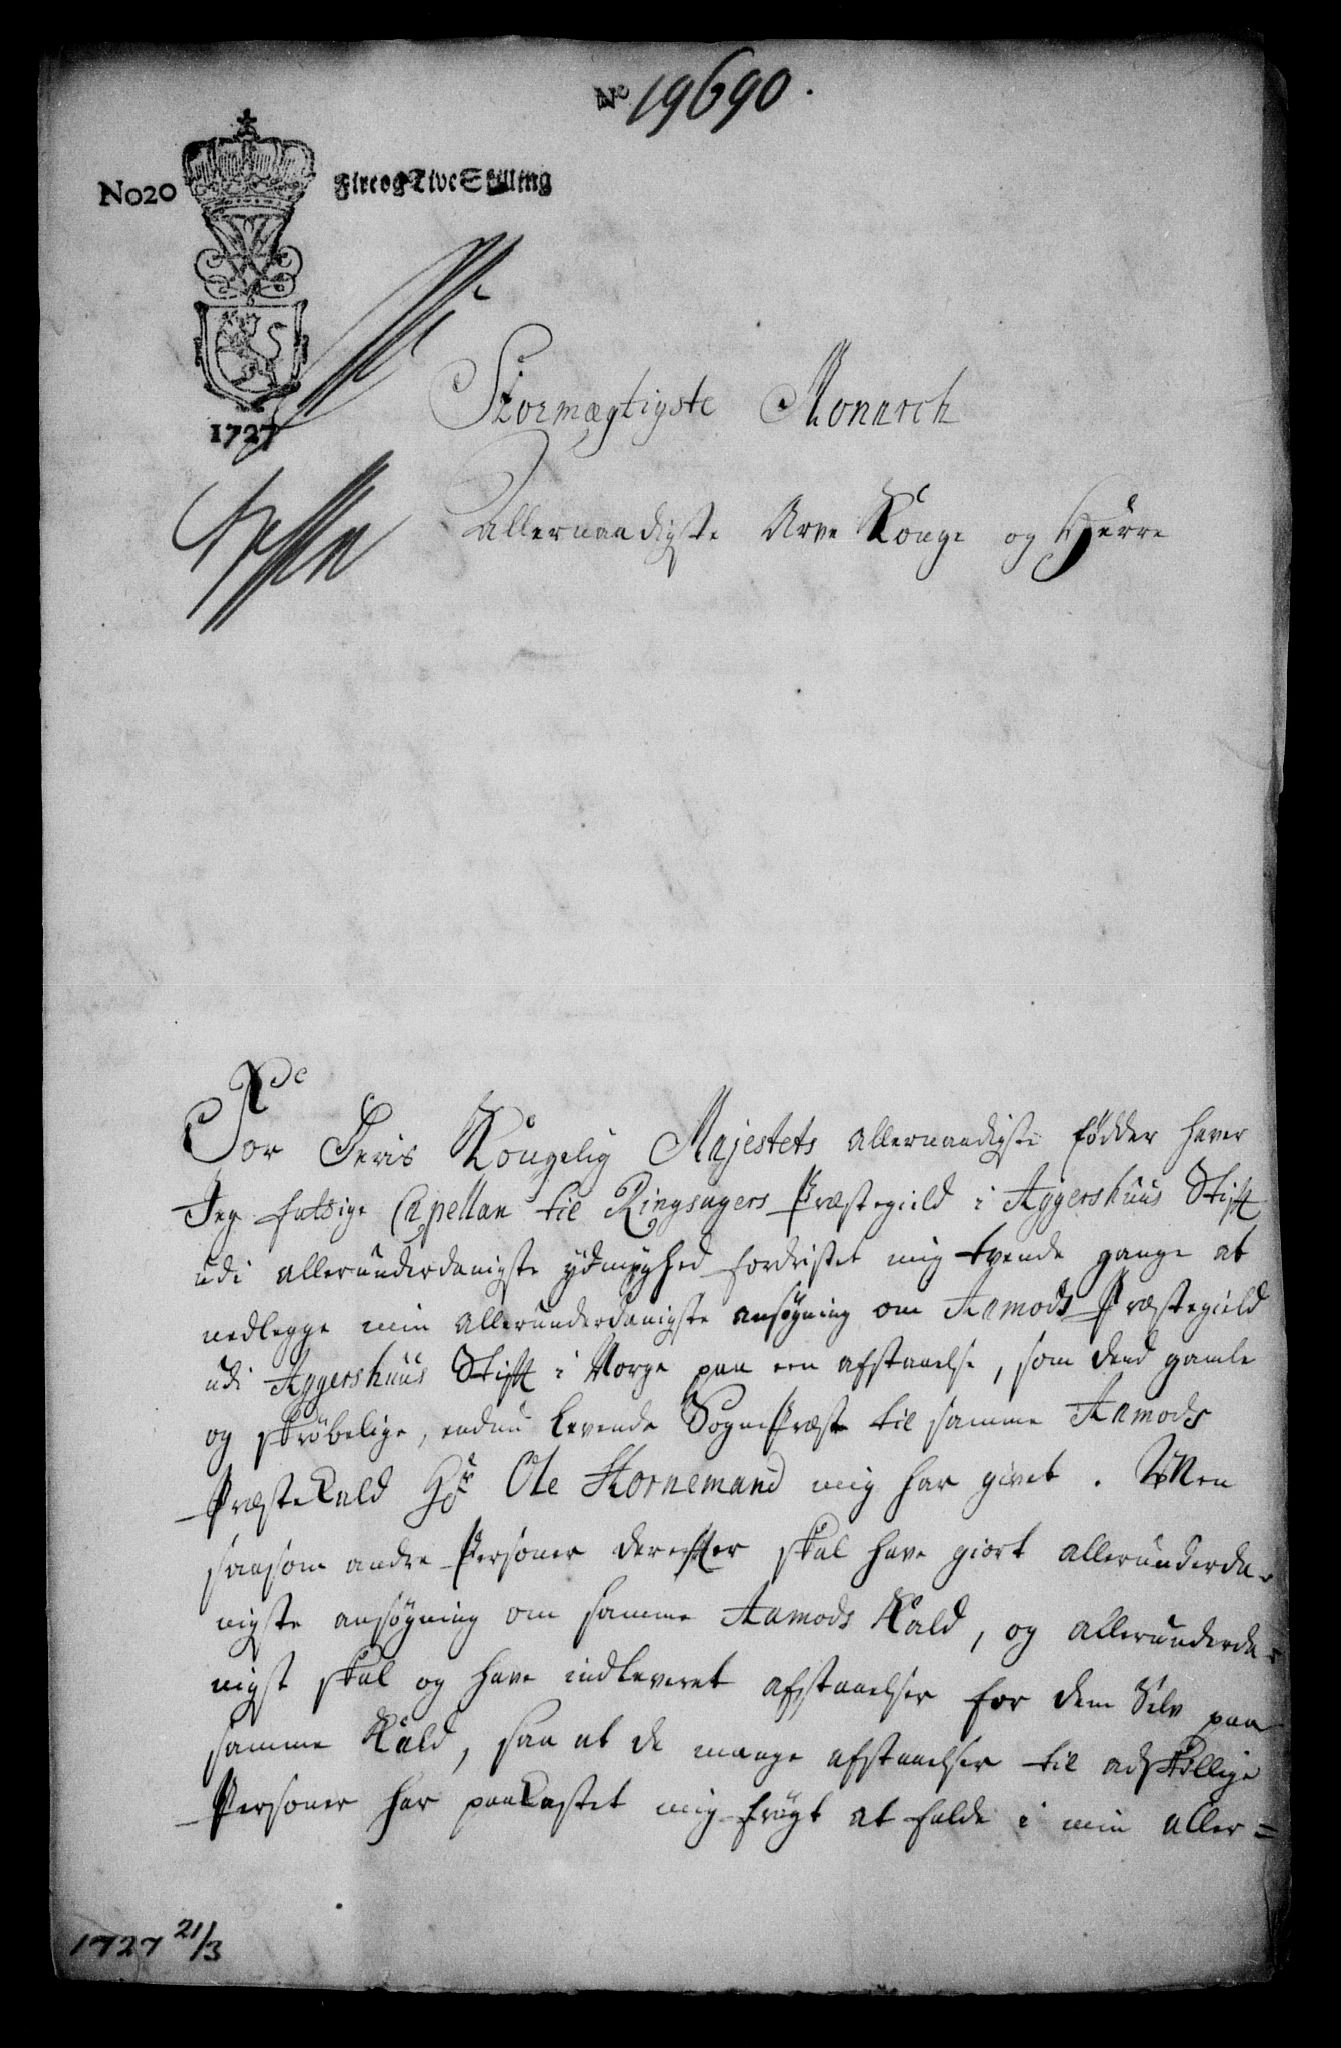 No 19690.
No20 Fire og Tive Skilling
1727
Stormægtigste Monarch
Allernaadigste Arve Konge og Herre
For Deris Kongelig Majestets allernaadigste födder haver
Jeg fattige Capellan til Ringsagers Præstegield i Aggershuus Stift
udi allerunderdanigste ydmyghed fordristet mig tvende gange at
nedlegge min allerunderdanigste ansögning om Aamods Præstegield
udi Aggershuus Stift i Norge paa een afstaaelse, som dend gamle
og skröbelige, endnu levende SognePræst til samme Aamods
PræsteKald Hr Ole Hornemand mig har givet. Men
saasom andre Personer derefter skal have giort allerunderda-
nigste ansögning om samme Aamods Kald, og allerunderda-
nigst skal og have indleveret afstaaelser for dem Selv paa
samme Kald, saa at de mange afstaaelser til adskillige
Personer har paaKastet mig frögt at falde i min aller=
1727 21/3